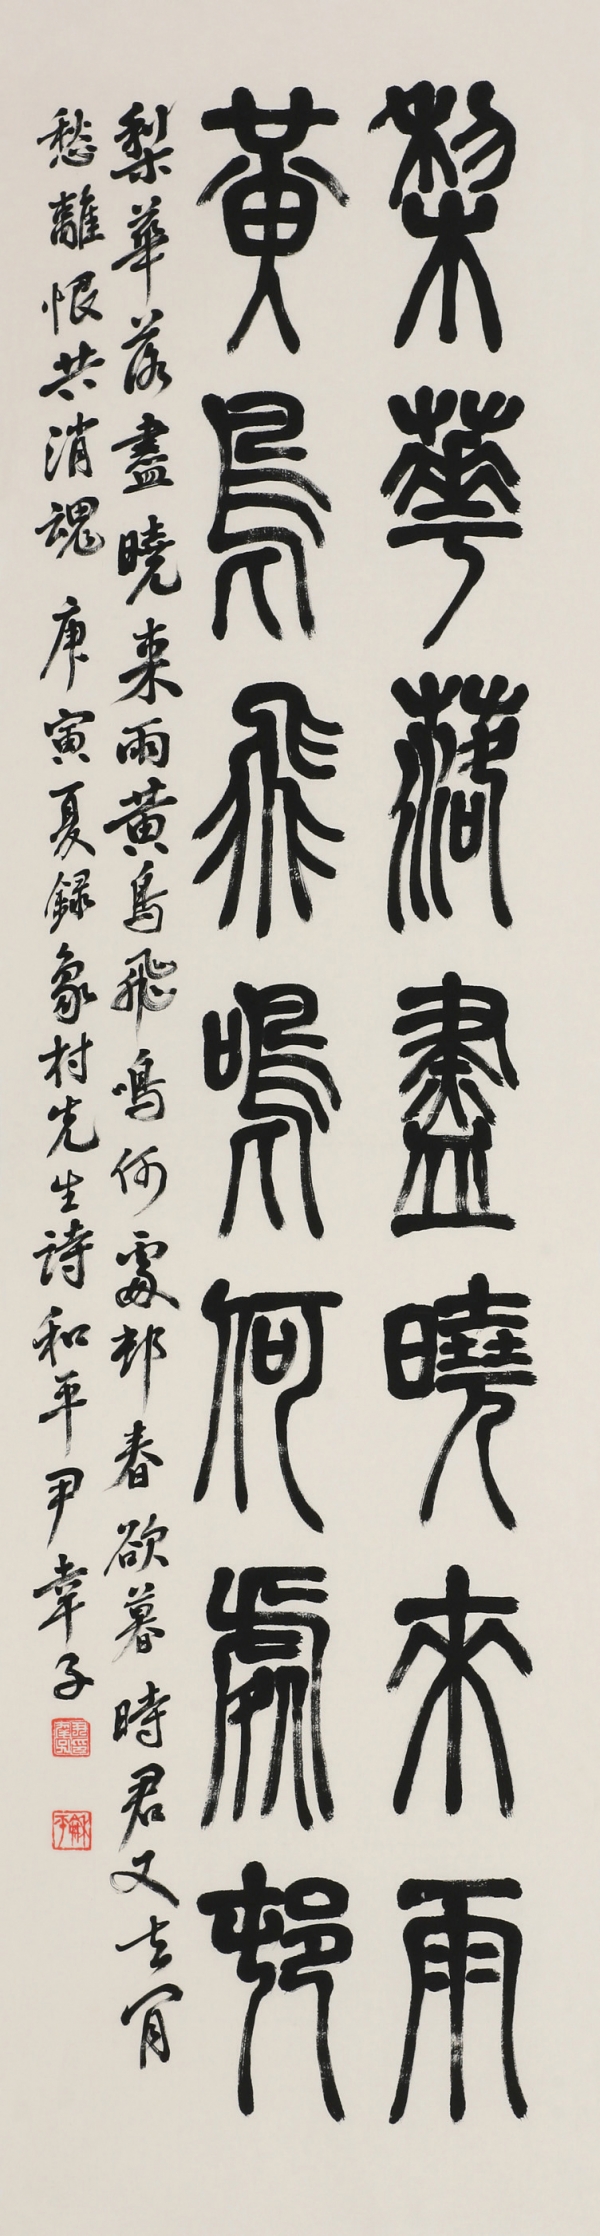 棃華落盡曉來雨
黃鳥飛鳴何處邨
梨華落盡曉来雨黄鳥飛鳴何處邨春欲暮時君又去閒
愁離恨共消魂 庚寅夏錄象村先生詩 和平 尹幸子